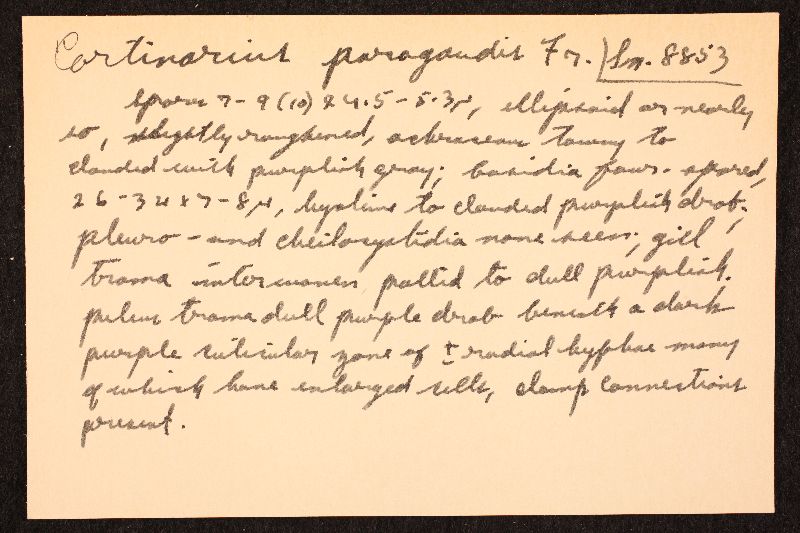 Cortinarius paragaudis Fr. Sm. 8853
Spores 7-9(10) x 4.5-5.3µ, ellipsoid or nearly
so, slightly roughened, ochraceous tawny to
clouded with purplish gray; basidia four-spored,
26-34 x 7-8µ, hyaline to clouded purplish drab;
pleuro- and cheilocystidia none seen; gill
trama interwoven pallid to dull purplish.
pileus trama dull purple drab beneath a dark
purple cuticular zone of ± radial hyphae many
of which have enlarged cells, clamp connections
present.